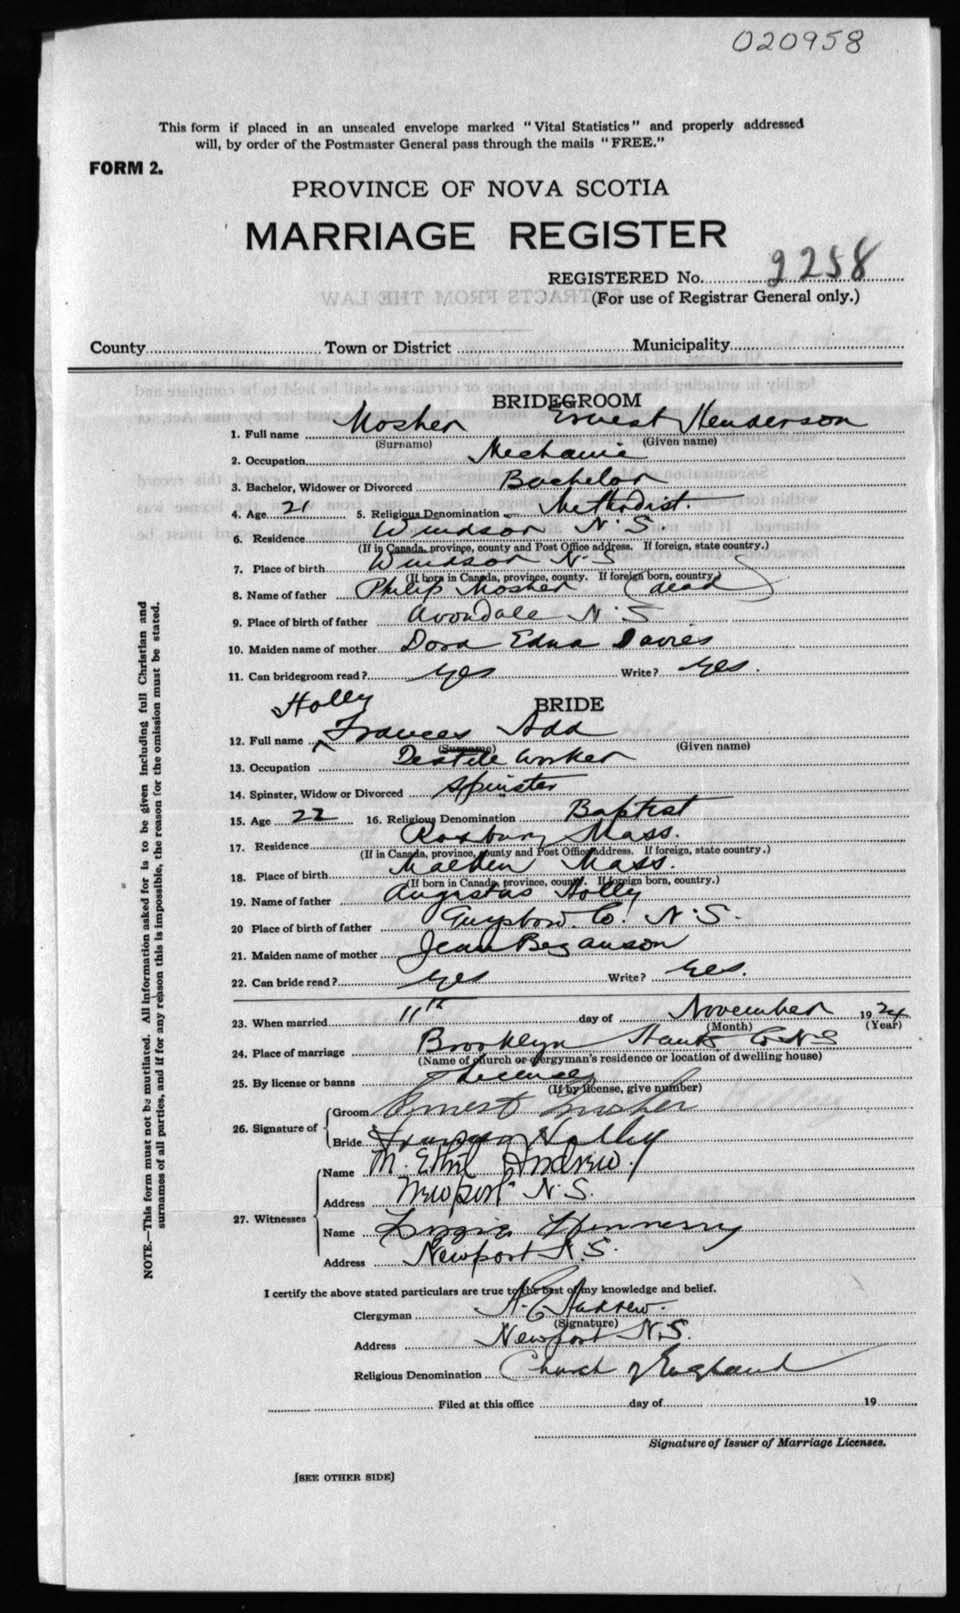 020958
This form if placed in an unsealed envelope marked "Vital Statistics" and properly addressed
will, by order of the Postmaster General pass through the mails "FREE."
FORM 2.
PROVINCE OF NOVA SCOTIA
MARRIAGE REGISTER
REGISTERED No. 2258
(For use of Registrar General only.)
County Town or District Municipality
BRIDEGROOM
1. Full name Mosher Ernest Henderson
(Surname) (Given name)
2. Occupation Mechanic
3. Bachelor, Widower or Divorced Bachelor
4. Age 21 5. Religious Denomination Methodist.
6. Residence Windsor N.S.
(If in Canada, province, county and Post Office address. If foreign, state country.)
7. Place of birth Windsor N.S
(If born in Canada, province, county. If foreign born, country.)
8. Name of father Philip Mosher (dead)
9. Place of birth of father Avondale N.S
10. Maiden name of mother Dora Edna Davies
11. Can bridegroom read? Yes Write? Yes.
BRIDE
Holly
12. Full name Frances Ada
(Surname) (Given name)
13. Occupation Textile Worker
14. Spinster, Widow or Divorced Spinster
15. Age 22 16. Religious Denomination Baptist
17. Residence Roxbury Mass.
(If in Canada, province, county and Post Office address. If foreign, state country.)
18. Place of birth Malden Mass.
(If born in Canada, province, county. If foreign born, country.)
19. Name of father Augustas Holly
20 Place of birth of father Guysboro. Co. N.S.
21. Maiden name of mother Jean Bezanson
22. Can bride read? Yes Write? Yes.
23. When married 11th day of November 1924
(Month) (Year)
24. Place of marriage Brooklyn Hants Co N S
(Name of church or clergyman's residence or location of dwelling house)
25. By license or banns License
(If by license, give number)
26. Signature of Groom Ernest Mosher
Bride Holly
27. Witnesses Name M. Ethel Andrew.
Address Newport N.S.
Name Hennessy
Address Newport N.S.
I certify the above stated particulars are true to the best of my knowledge and belief.
Clergyman A. C. Andrew.
(Signature)
Address Newport N.S.
Religious Denomination Church of England
Filed at this office day of 19
Signature of Issuer of Marriage Licenses.
[SEE OTHER SIDE]
NOTE.—This form must not be mutilated. All information asked for is to be given including full Christian and
surnames of all parties, and if for any reason this is impossible, the reason for the omission must be stated.